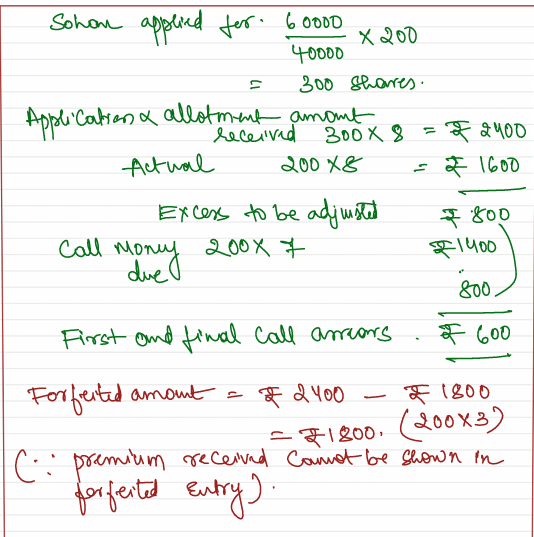 Sohan applied for. 60000/40000 × 200
= 300 shares.
Application & allotment amount
received 300 × 8 = ₹ 2400
Actual 200 × 8 = ₹ 1600
Excess to be adjusted ₹ 800
Call Money 200 × 7 ₹ 1400
due 800
First and final call arrears . ₹ 600
Forfeited amount = ₹ 2400 – ₹ 1800
= ₹ 1800. (200×3)
(∵ premium received cannot be shown in
forfeited entry).